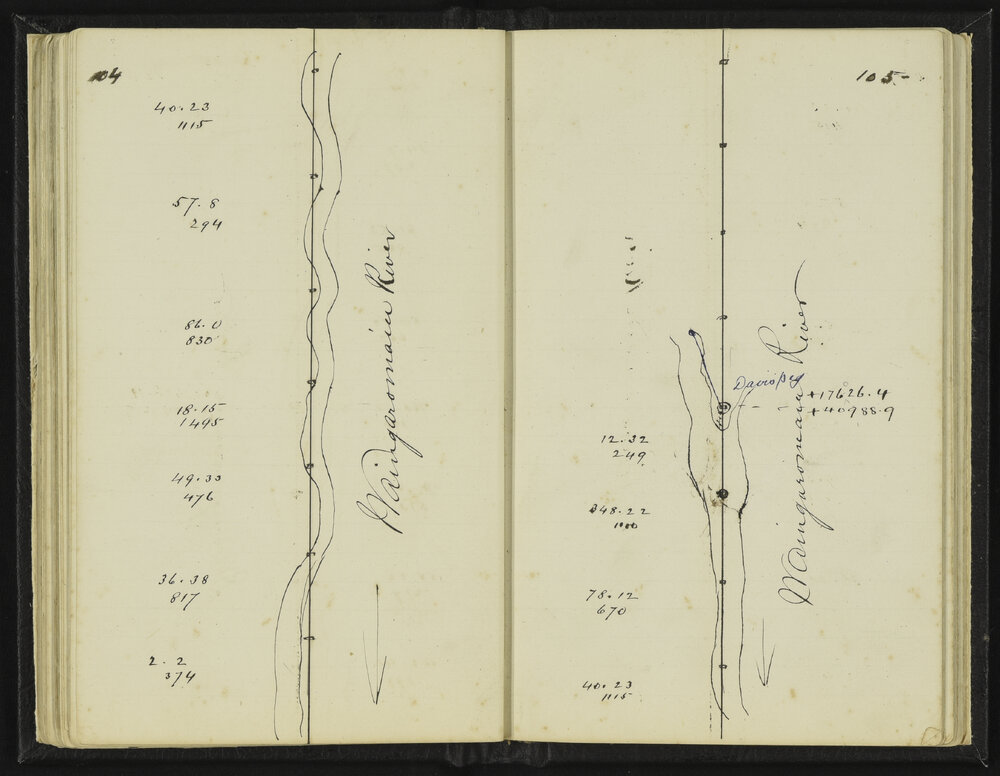 104
40.23
1115
57.8
294
86.0
830
18.15
1495
49.33
476
36.38
817
2.2
374
Waingaromaiu River
105
Davis peg
+17626.4
+40988.9
12.32
249
348.22
1100
78.12
670
40.23
1115
Waingaromaiu River